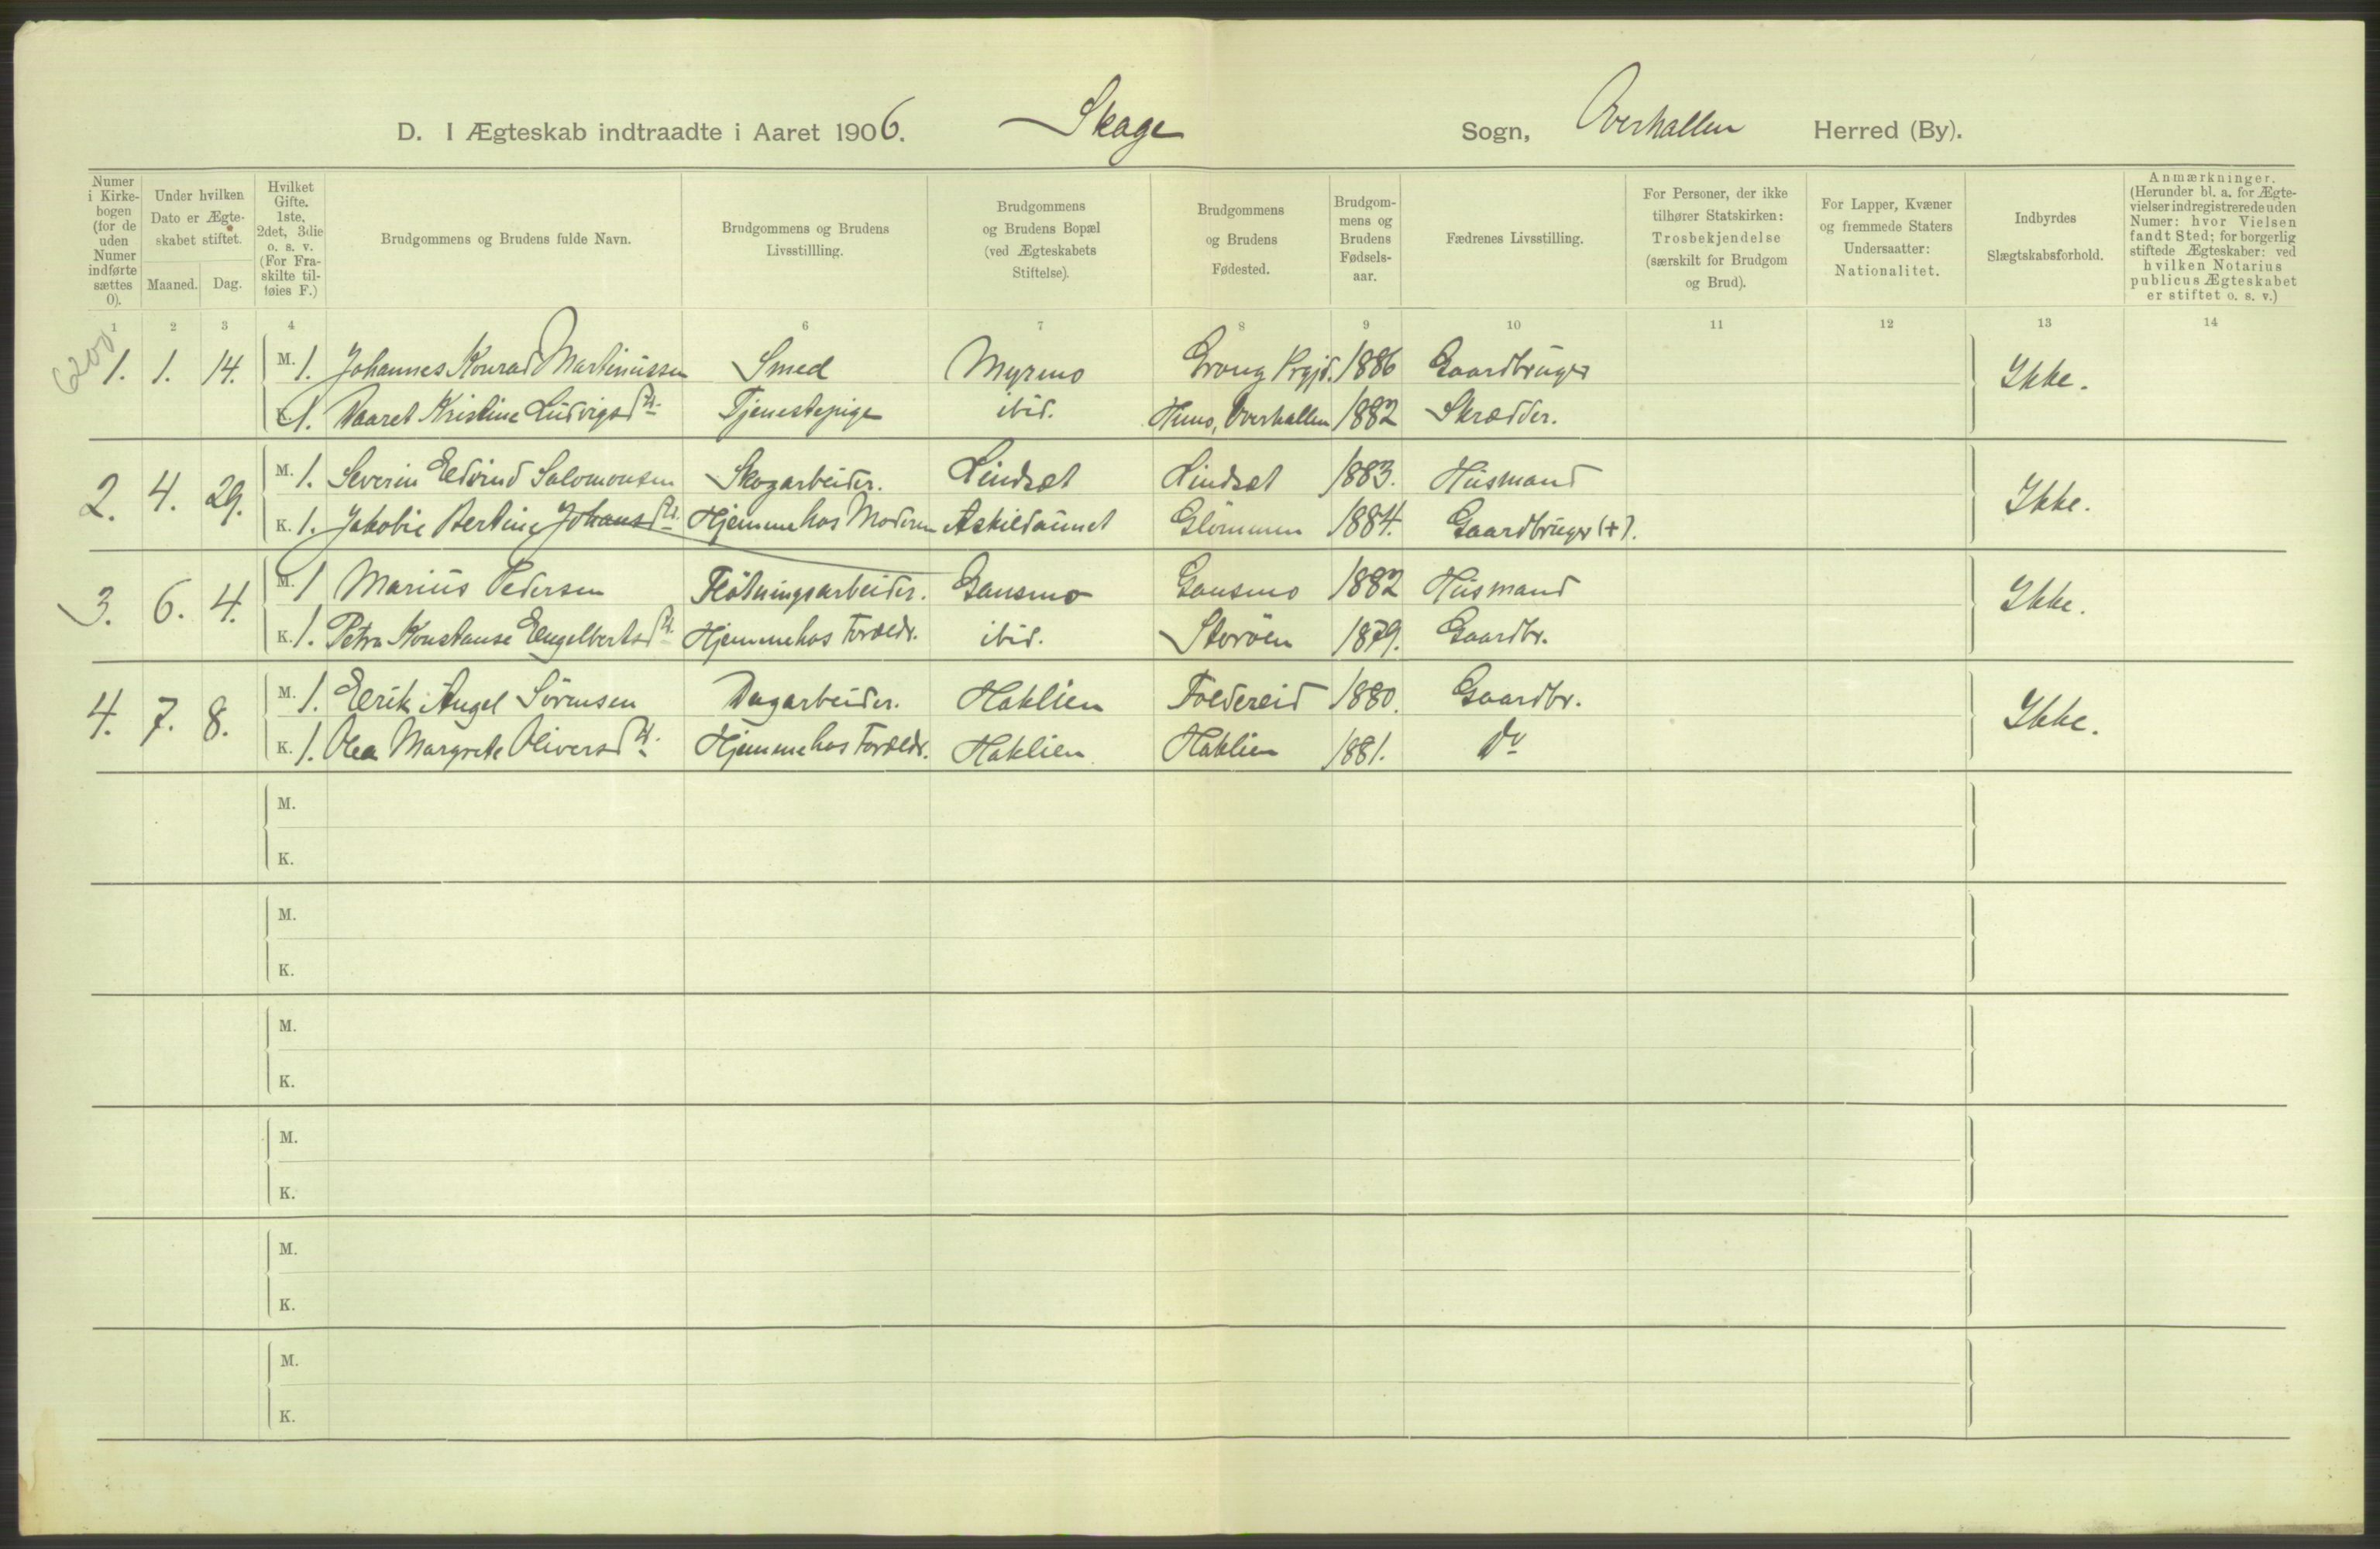 D. I Ægteskab indtraadte i Aaret 1906. Skage Sogn, Overhallen Herred (By).
Numer i Kirkebogen (for de uden Numer indførte sættes 0).
Under hvilken Dato er Ægteskabet stiftet.
Maaned. Dag.
Hvilket Gifte. 1ste, 2det, 3die o. s. v. (For Fraskilte tilføies F.)
Brudgommens og Brudens fulde Navn.
Brudgommens og Brudens Livsstillling.
Brudgommens og Brudens Bopæl (ved Ægteskabets Stiftelse).
Brudgommens og Brudens Fødested.
Brudgommens og Brudens Fødselsaar.
Fædrenes Livsstilling.
For Personer, der ikke tilhører Statskirken: Trosbekjendelse (særskilt for Brudgom og Brud).
For Lapper, Kvæner og fremmede Staters Undersaatter: Nationalitet.
Indbyrdes Slægtskabsforhold.
Anmærkninger. (Herunder bl. a. for Ægtevielser indregistrerede uden Numer: hvor Vielsen fandt Sted; for borgerlig stiftede Ægteskaber: ved hvilken Notarius publicus Ægteskabet er stiftet o. s. v.)
1 2 3 4 6 7 8 9 10 11 12 13 14
6200
1. 1. 14. M. 1. Johannes Konrad Martinussen Smed Myrmo Grong Prgjd. 1886 Gaardbruger Ikke.
K. 1. Kristine Ludvigsdtr. Tjenestepige ibid. Himo, Overhallen 1882 Skrædder.
2. 4. 29. M. 1. Severin Edvind Salomonsen Skogarbeider. Lindset Lindset 1883. Husmand Ikke.
K. 1. Jakobie Bertine Johansdtr. Hjemme hos Moderen Askildaunet Glömmen 1884. Gaardbruger (+).
3. 6. 4. M. 1 Marius Pedersen Flötningsarbeider. Gansmo Gansmo 1882 Husmand Ikke.
K. 1. Petra Konstanse Engelbertsdtr. Hjemme hos Forældr. ibid. Storöen 1879. Gaardbr.
4. 7. 8. M. 1. Erik Angel Sörensen Dagarbeider. Haklien Foldereid 1880. Gaardbr. Ikke.
K. 1. Olea Margrete Oliversdtr. Hjemme hos Forældr. Haklien Haklien 1881. Do
M.
K.
M.
K.
M.
K.
M.
K.
M.
K.
M.
K.